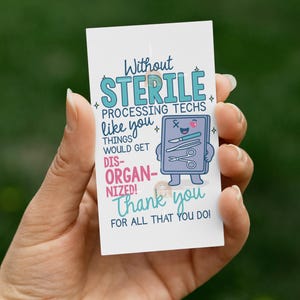 Without
STERILE
PROCESSING TECHS
like you
THINGS
WOULD GET
DIS-
ORGAN-
NIZED!
Thank you
FOR ALL THAT YOU DO!